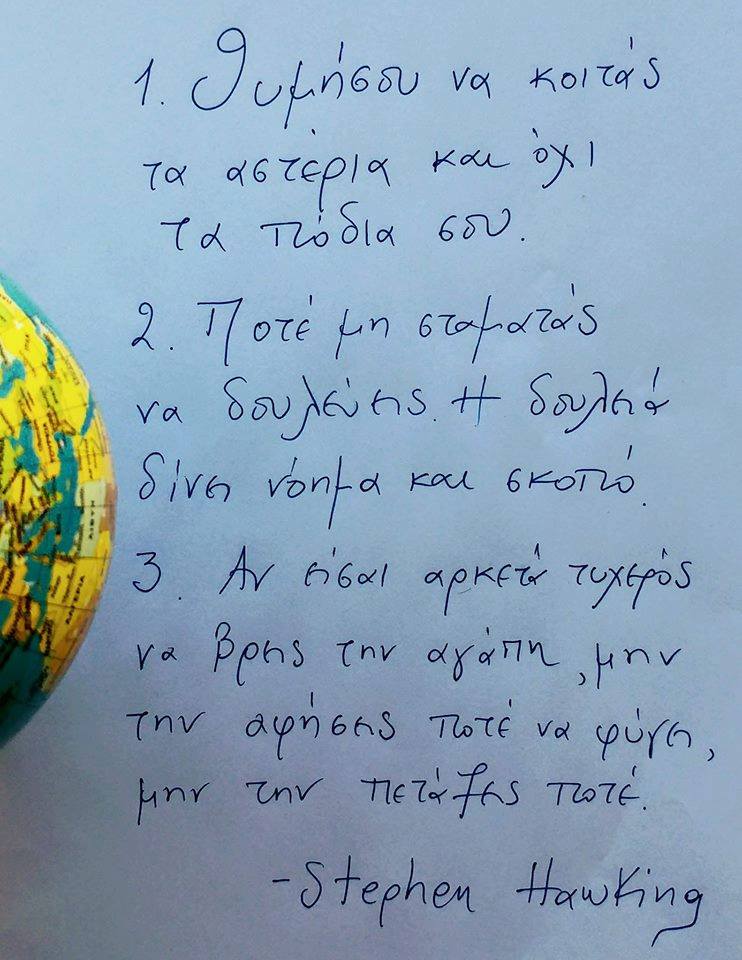 1. Θυμήσου να κοιτάς
τα αστέρια και όχι
τα πόδια σου.
2. Ποτέ μη σταματάς
να δουλεύεις. Η δουλειά
δίνει νόημα και σκοπό.
3. Αν είσαι αρκετά τυχερός
να βρεις την αγάπη, μην
την αφήσεις ποτέ να φύγει,
μην την πετάξεις ποτέ.
-Stephen Hawking